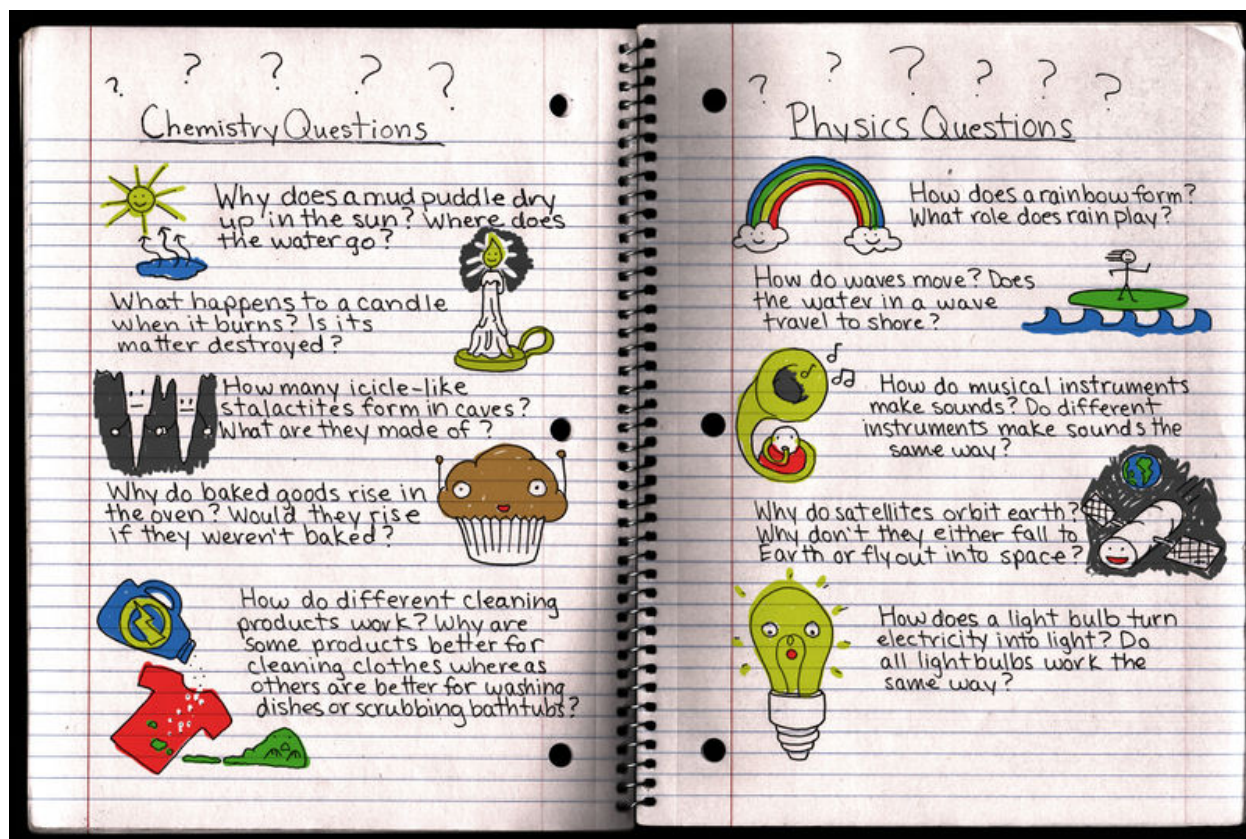 ? ? ? ? ?
Chemistry Questions
Why does a mud puddle dry
up in the sun? Where does
the water go?
What happens to a candle
when it burns? Is its
matter destroyed?
How many icicle-like
stalactites form in caves?
What are they made of?
Why do baked goods rise in
the oven? Would they rise
if they weren't baked?
How do different cleaning
products work? Why are
some products better for
cleaning clothes whereas
others are better for washing
dishes or scrubbing bathtubs?
? ? ? ? ? ?
Physics Questions
How does a rainbow form?
What role does rain play?
How do waves move? Does
the water in a wave
travel to shore?
How do musical instruments
make sounds? Do different
instruments make sounds the
same way?
Why do satellites orbit earth?
Why don't they either fall to
Earth or fly out into space?
How does a light bulb turn
electricity into light? Do
all lightbulbs work the
same way?